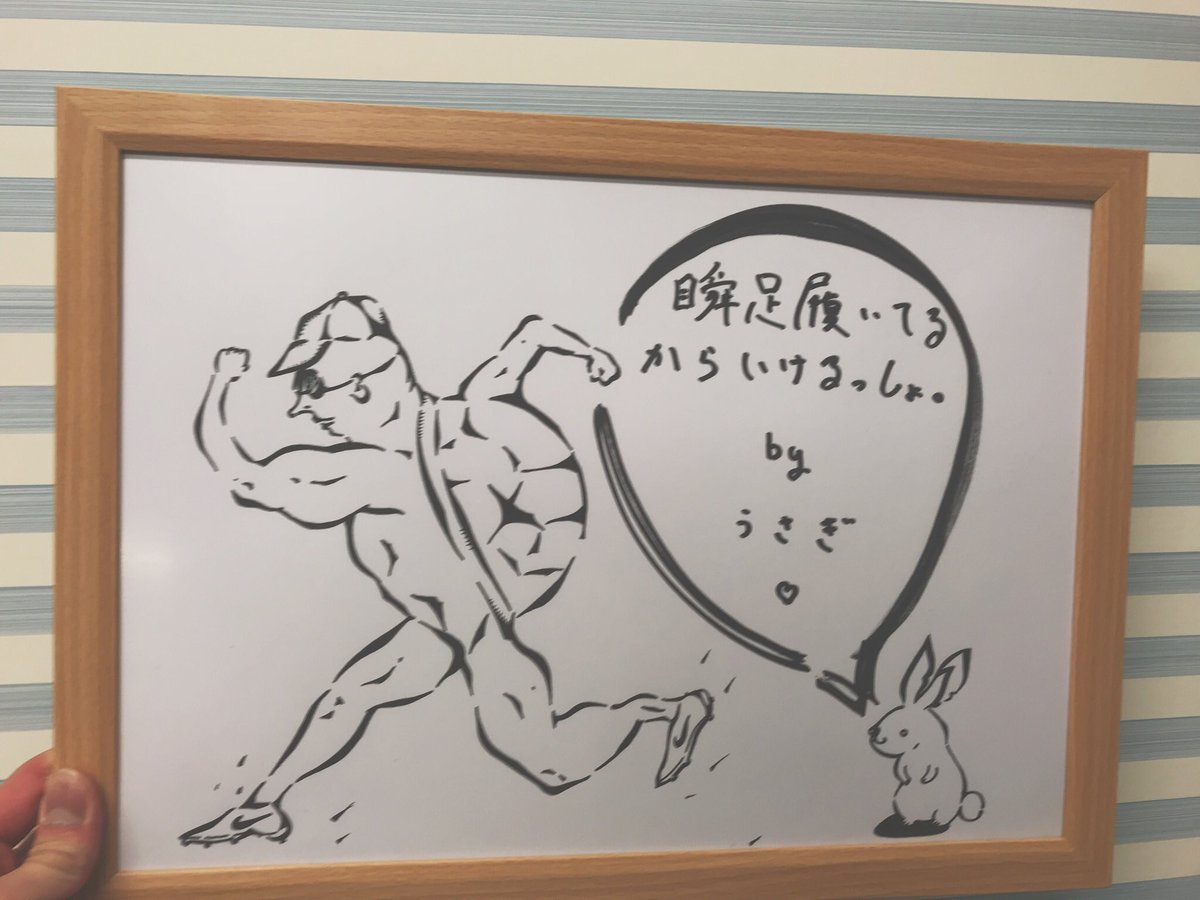 瞬足履いてる
からいけるっしょ。
by
うさぎ
♡